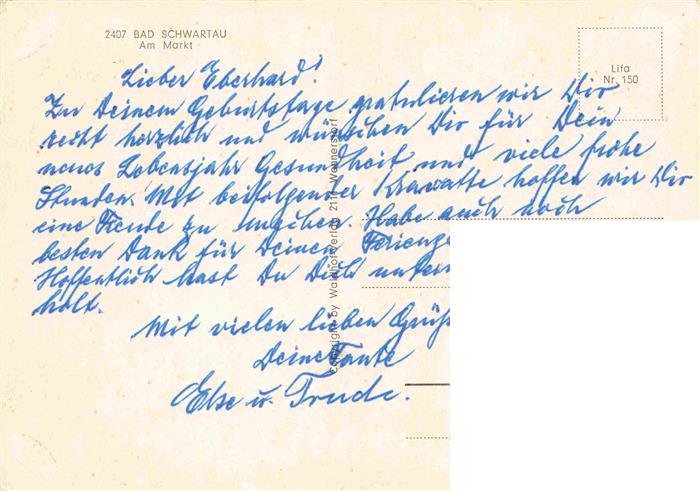 2407 BAD SCHWARTAU
Am Markt
Lifa
Nr. 150
Lieber Eberhard!
Zu Deinem Geburtstage gratulieren wir Dir
recht herzlich und wünschen Dir für Dein
neues Lebensjahr Gesundheit und viele frohe
Stunden. Mit beifolgender Krawatte hoffen wir Dir
eine Freude zu machen. Habe auch noch
besten Dank für Deinen Ferieng
Hoffentlich hast Du Dich untern
holt.
Mit vielen lieben Grüß
Deine Tante
Else u. Trude.
Copyright by Waldhof-Verlag 2111 Wennerstorf